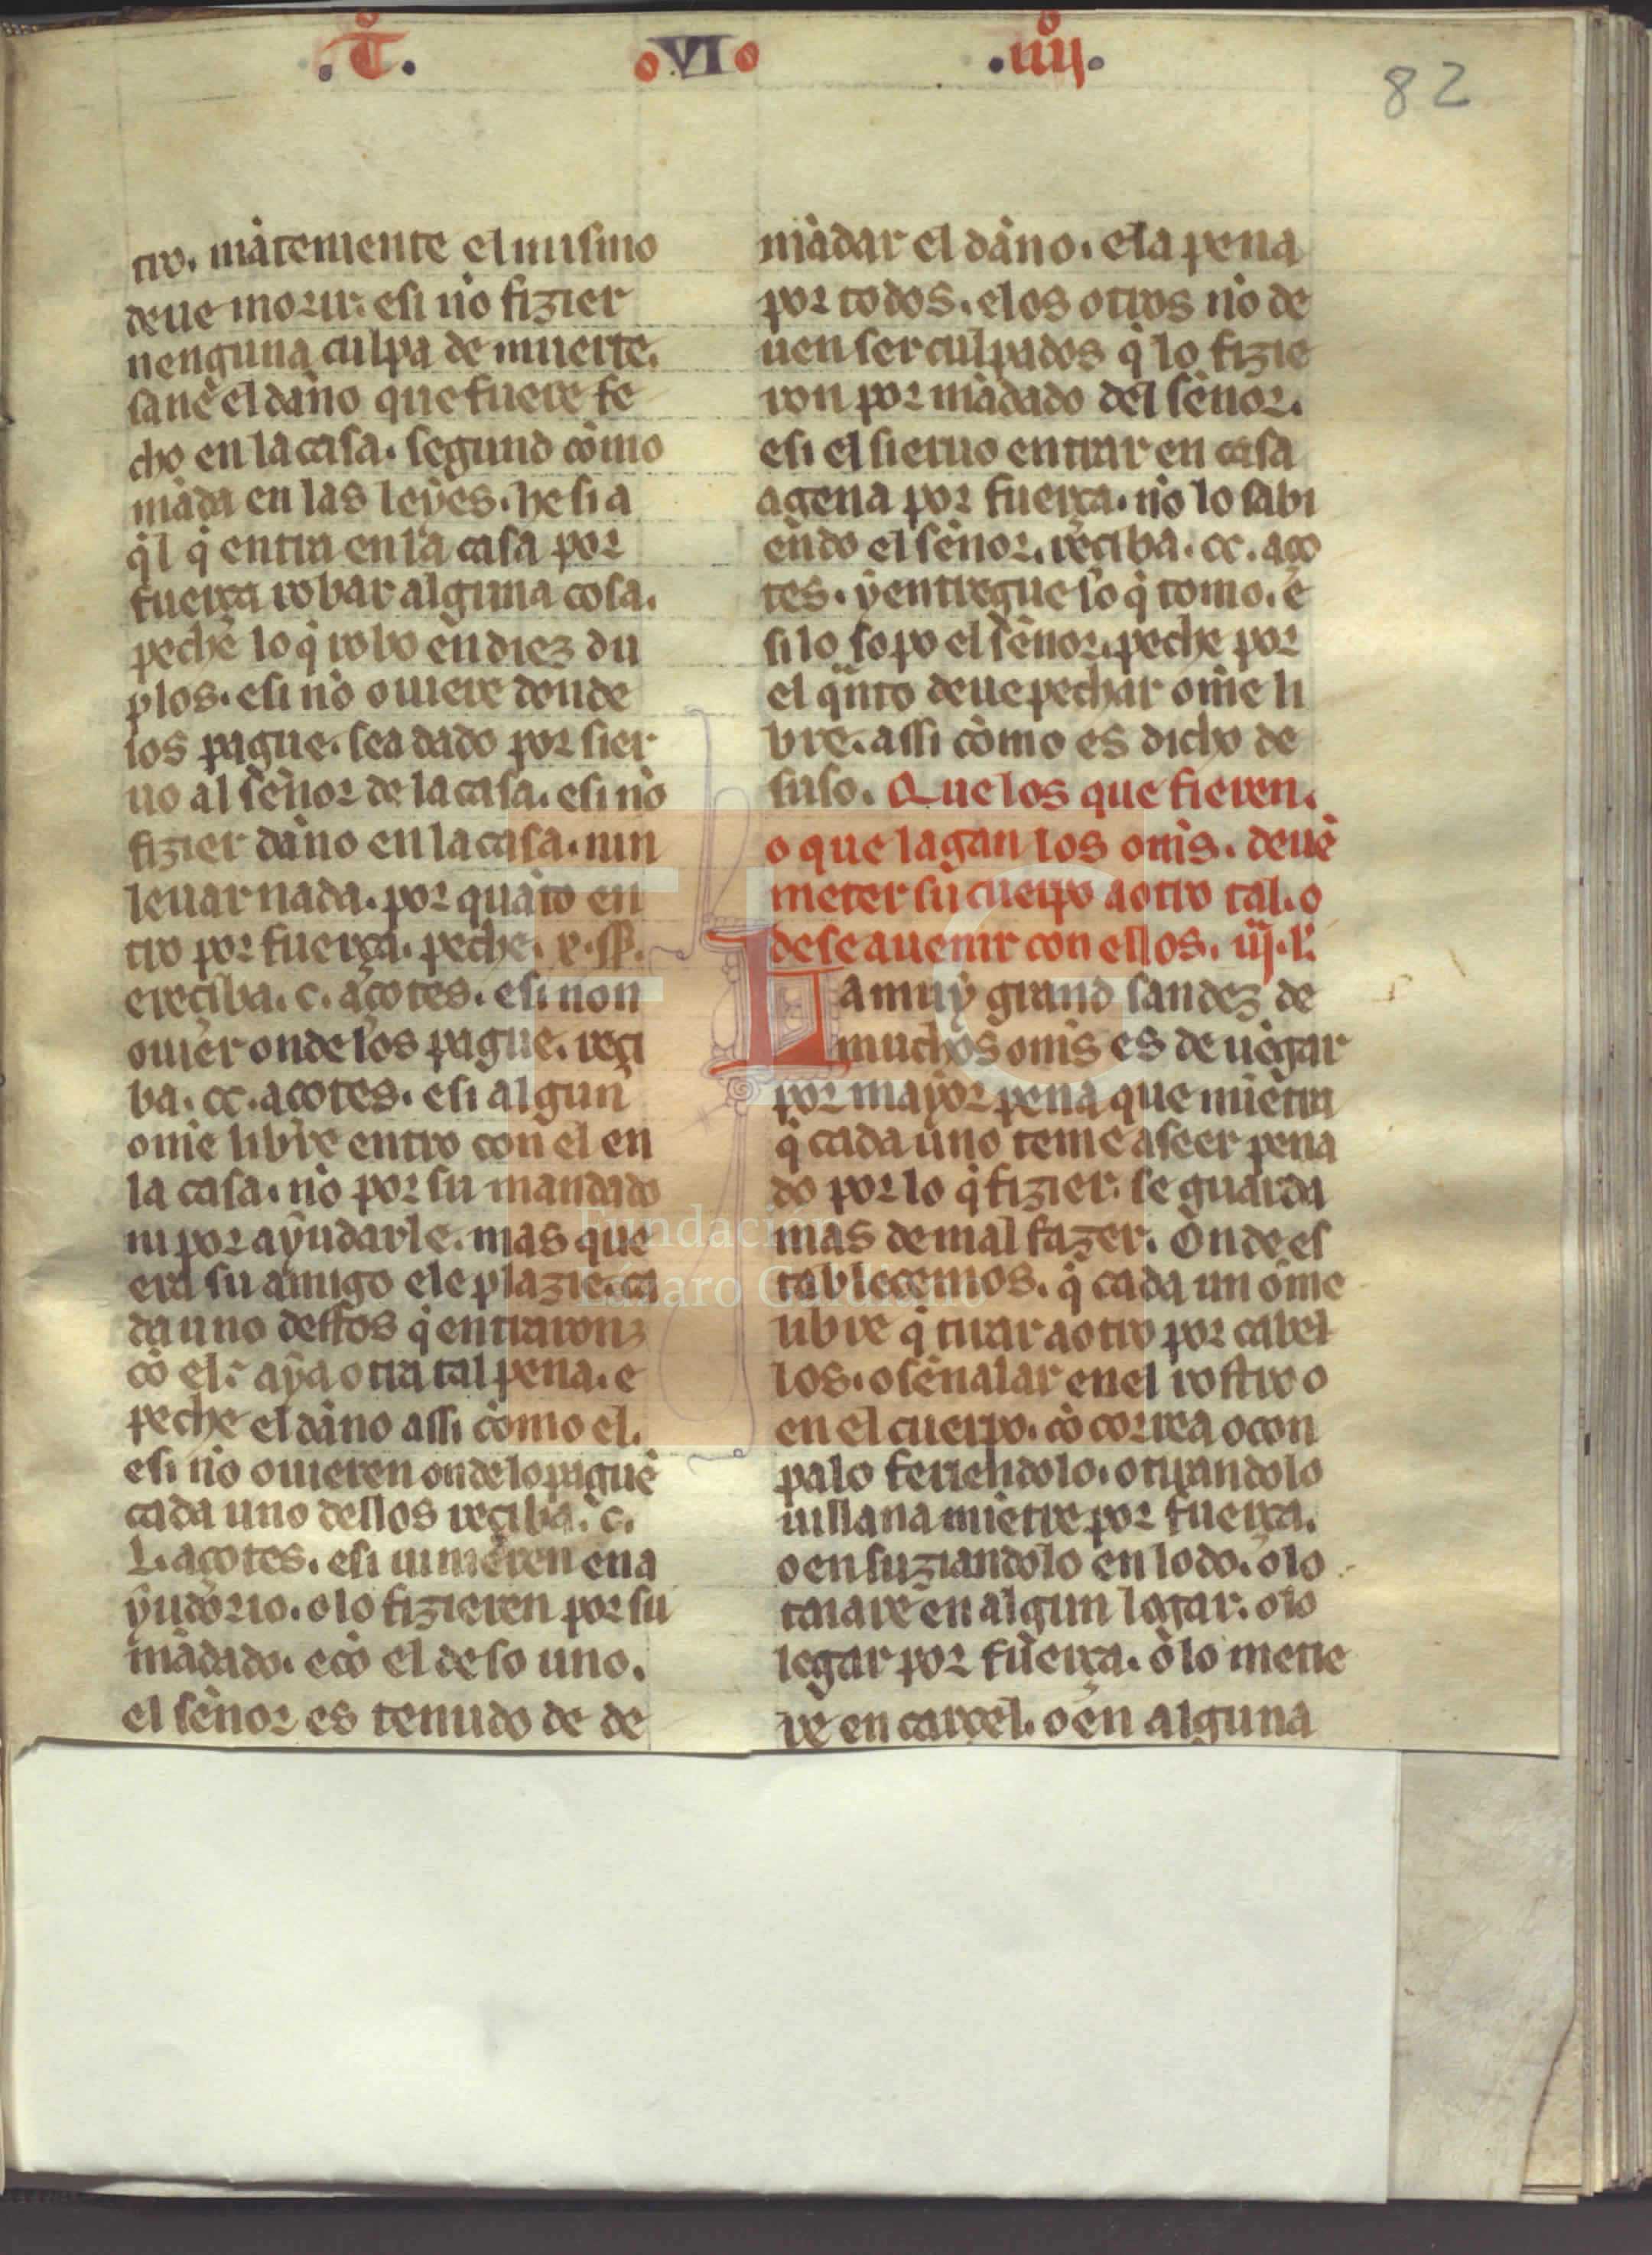 .T°.
VI
.iiij°.
82
tro. māteniente el mismo
deue morir. e si nō fizier
nenguna culpa de muerte.
sanē el daño que fuere fe
cho en la casa. segund cōmo
māda en las leyes. he si a
q̇l q̇ entra en la casa por
fuerça robar alguna cosa.
peche lo q̇ robo en diez du
plos. e si nō ouiere donde
los pague. sea dado por sier
uo al señor de la casa. e si nō
fizier daño en la casa. nin
leuar nada. por quāto en
tro por fuerça. peche. x. ss̄.
e reçiba. c. açotes. e si non
ouier onde los pague. reçi
ba. cc. açotes. e si algun
om̄e libre entro con el en
la casa. nō por su mandado
ni por ayudarle. mas que
era su amigo e le plazie. ca
da uno destos q̇ entraron
cō el. aya otra tal pena. e
peche el daño assi cōmo el.
e si nō ouieren onde lo paguē
cada uno dellos reçiba. c.
L. açotes. e si uinieren en a
yudorio. o lo fizieren por su
mādado. e cō el de so uno.
el señor es tenudo de de
mādar el daño. e la pena
por todos. e los otros nō de
uen ser culpados q̇ lo fizie
ron por mādado del señor.
e si el sieruo entrar en casa
agena por fuerça. nō lo sabi
endo el señor. reçiba. cc. aço
tes. y entregue lo q̇ tomo. e
si lo sopo el señor. peche por
el q̇nto deue pechar om̄e li
bre. assi cōmo es dicho de
suso. Que los que fieren.
o que lagan los om̄s. deuē
meter su cuerpo a otro tal. o
de se auenir con ellos. iij. l.
La muy grand sandez de
muchos om̄s es de uēgar
por mayor pena que miētra
q̇ cada uno teme aseer pena
do por lo q̇ fizier. se guarda
mas de mal fazer. Onde es
tablecemos. q̇ cada un om̄e
libre q̇ tirar a otro por cabel
los. o señalar en el rostro o
en el cuerpo. cō correa o con
palo feriendolo. o tirandolo
uillana miētre por fuerça.
o ensuziandolo en lodo. o lo
taiare en algun logar. o lo
legar por fuerça. o lo metie
re en carçel. o en alguna